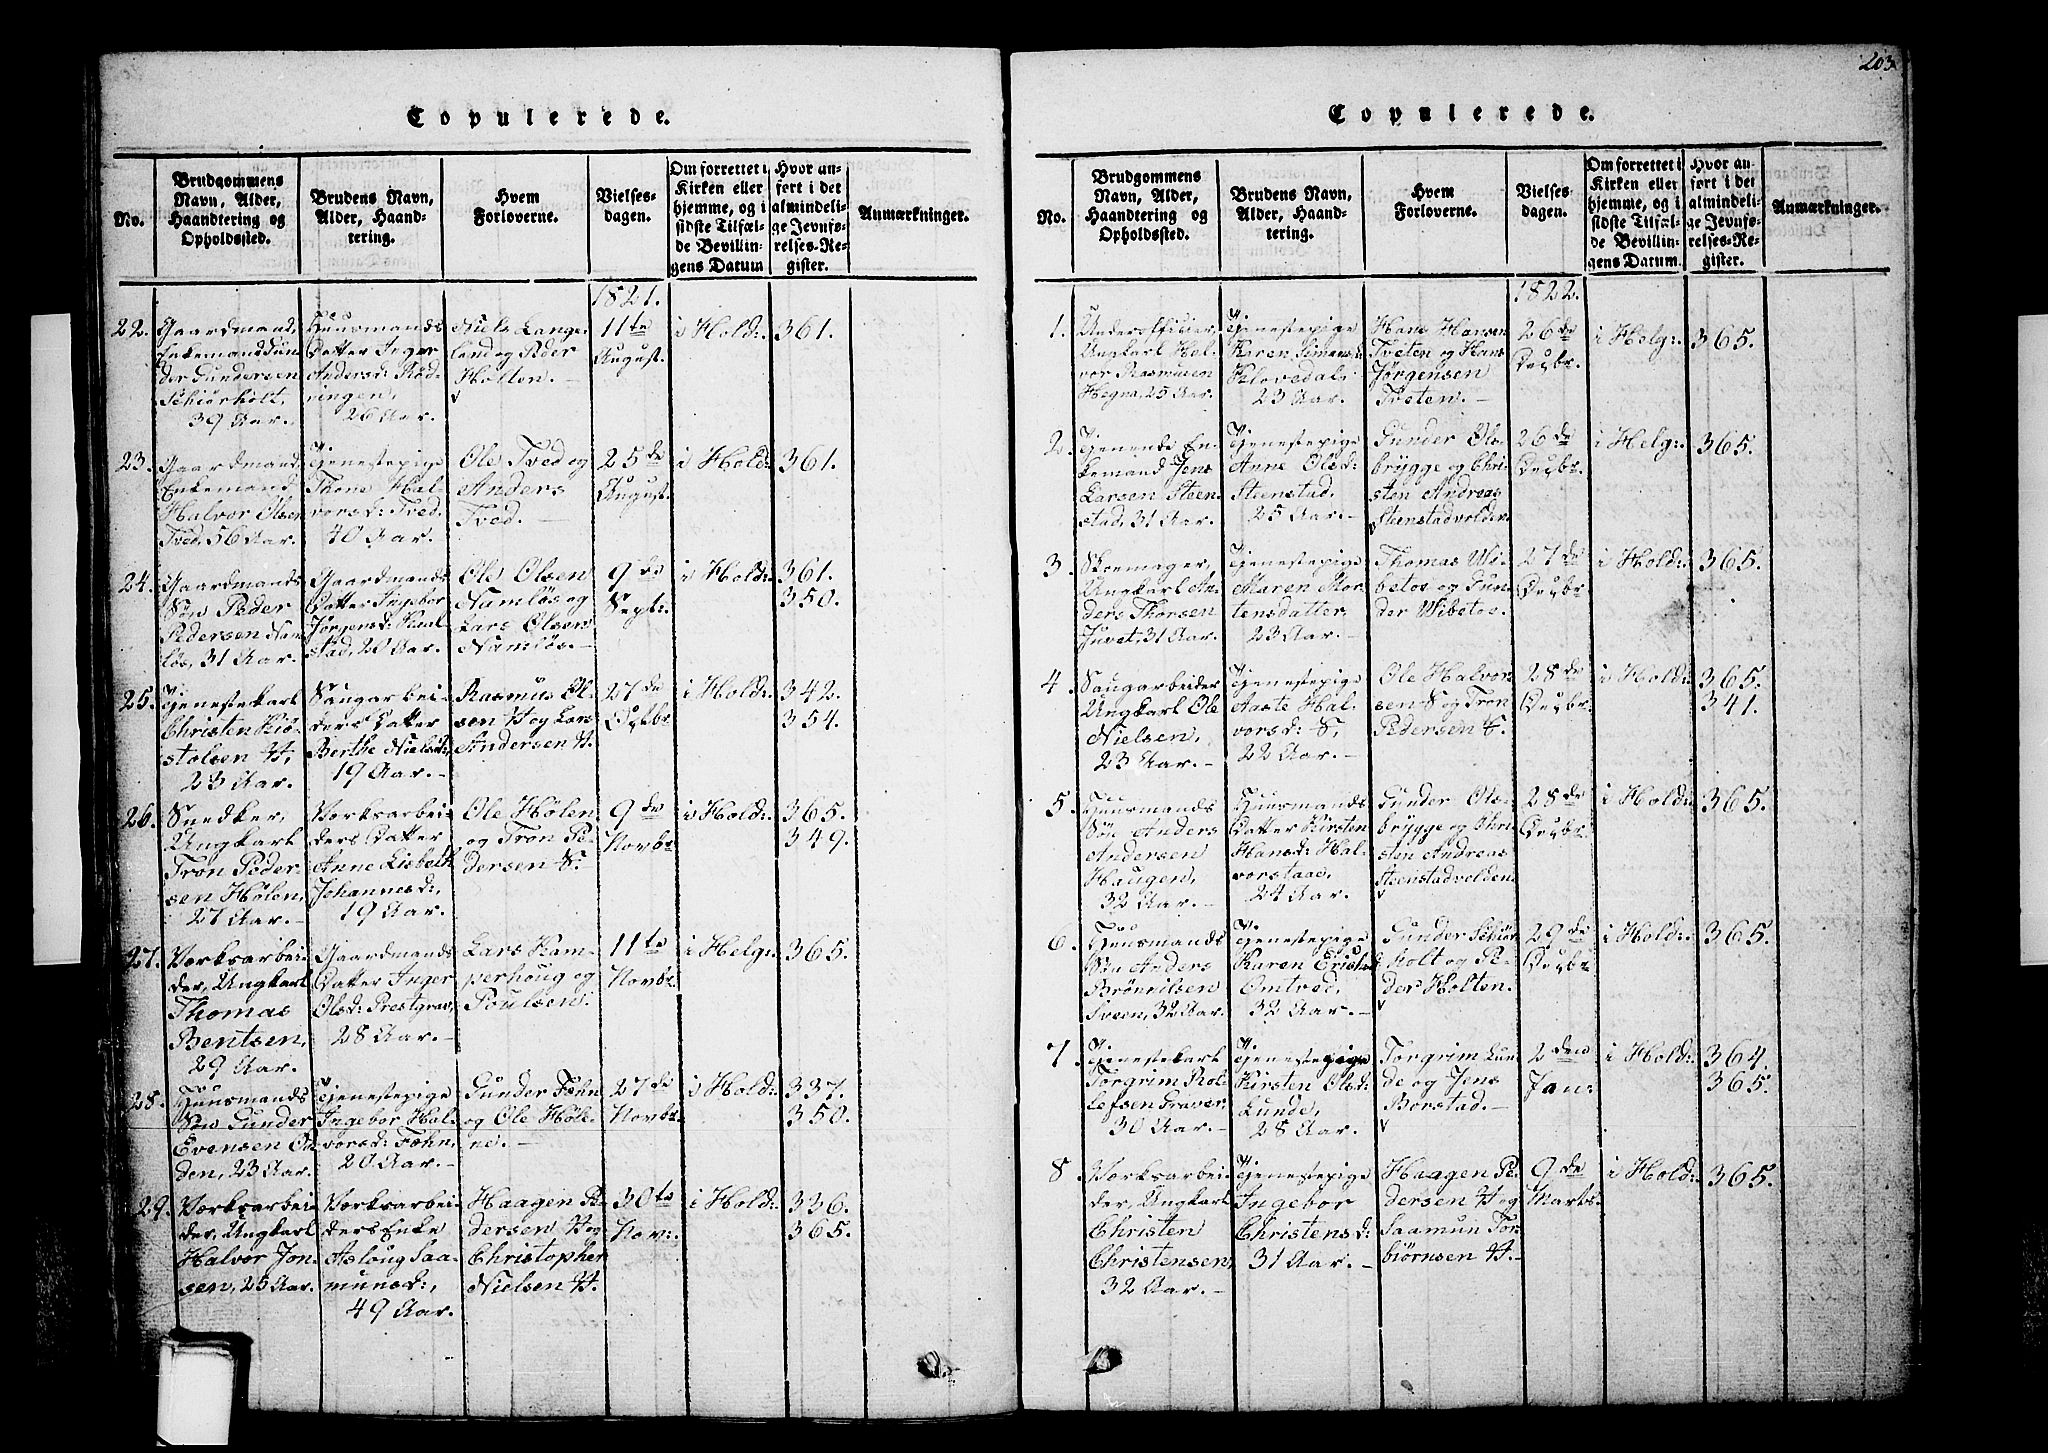 203
Copulerede.
No.
Brudgommens
Navn, Alder,
Haandtering og
Opholdssted.
Brudens Navn,
Alder, Haand-
tering.
Hvem
Forloverne.
Vielses-
dagen.
Om forrettet i
Kirken eller
hjemme, og i
sidste Tilfæl-
de Bevillin-
gens Datum
Hvor an-
ført i det
almindeli-
ge Jevnfø-
relses-Re-
gister.
Anmærkninger.
1821.
22.
Gaardmand,
Enkemand Gun-
der Gundersen
Schiørholt,
39 Aar.
Huusmands
Datter Inger
Andersd: Rød-
ningen,
26 Aar.
Niels Lange-
land og Peder
Holten.
11te
August.
i Hold:
361.
23.
Gaardmand,
Enkemand
Halvor Olsen
Tved, 56 Aar.
Tjenestepige
Thone Hal-
vorsd: Tved.
40 Aar.
Ole Tved og
Anders
Tved.
25de
August.
i Hold:
361.
24.
Gaardmands
Søn Peder
Pedersen Nam-
løs, 31 Aar.
Gaardmands
Datter Ingebor
Jørgensd:
stad, 20 Aar.
Ole Olsen
Namløs og
Lars Olsen
Namløs.
9de
Sept:
i Hold:
361.
350.
25.
Tjenestekarl
Christen Kiø-
stolsen H,
23 Aar.
Saugarbei-
ders Datter
Berthe Nielsd:,
19 Aar.
Rasmus Ol-
sen H og Lars
Andersen H.
27de
Octbr.
i Hold:
342.
354.
26.
Snedker,
Ungkarl
Tron Peder-
sen Holen,
27 Aar.
Værksarbei-
ders Datter
Anne Lisbeth
Johannesd:,
19 Aar.
Ole Hølen
og Tron Pe-
dersen S.
9de
Novbr.
i Hold:
365.
349.
27.
Værksarbei-
der, Ungkarl
Thomas
Bentsen,
29 Aar.
Gaardmands
Datter Inger
Olsd: Prestgrav,
28 Aar.
Lars Kam-
perhoug og
Poulsen.
11te
Novbr.
i Helg:
365.
28.
Huusmands
Søn Gunder
Evensen
den, 23 Aar.
Tjenestepige
Ingebor Hal-
vorsd: Fæhn,
20 Aar.
Gunder Fæhn
og Ole Høle-
ne.
27de
Novbr.
i Hold:
337.
350.
29.
Værksarbei-
der, Ungkarl
Halvor Jon-
sen, 25 Aar.
Værksarbei-
ders Enke
Asloug Saa-
munsd:,
49 Aar.
Haagen Pe-
dersen H og
Christopher
Nielsen H.
30te
Nov:
i Hold:
336.
365.
Copulerede.
No.
Brudgommens
Navn, Alder,
Haandtering og
Opholdssted.
Brudens Navn,
Alder, Haand-
tering.
Hvem
Forloverne.
Vielses-
dagen.
Om forrettet i
Kirken eller
hjemme, og i
sidste Tilfæl-
de Bevillin-
gens Datum.
Hvor an-
ført i det
almindeli-
ge Jevnfø-
relses-Re-
gister.
Anmærkninger.
1822.
1.
Underofficier,
Ungkarl Hal-
vor Rasmusen
Hegna, 25 Aar.
Tjenestepige
Karen Simensd:
23 Aar.
Hans Hansen
Tveten og Hans
Jørgensen
Tveten.
26de
Decbr.
i Helg:
365.
2.
Tjenende En-
kemand Jens
Larsen Steen-
stad, 31 Aar.
Tjenestepige
Anne Olsd:
Steenstad.
25 Aar.
Gunder Ols-
brygge og Chri-
sten Andreas
Steenstadvolden.
26de
Decbr.
i Helg:
365.
3.
Skoemager,
Ungkarl An-
ders Thorsen
Juvet, 31 Aar.
Tjenestepige
Maren Mor-
tensdatter
23 Aar.
Thomas Wi-
betoe og Gun-
der Wibetoe.
27de
Decbr
i Hold:
365.
4.
Saugarbeider
Ungkarl Ole
Nielsen,
23 Aar.
Tjenestepige
Aaste Hal-
vorsd: S,
22 Aar.
Ole Halvor-
sen S og Tron
Pedersen S.
28de
Decbr.
i Hold:
365.
341.
5.
Huusmands
Søn Anders
Andersen
Haugen,
32 Aar.
Huusmands
Datter Kirsten
Hansd: Hal-
vorstaae,
24 Aar.
Gunder Ols-
brygge og Chri-
sten Andreas
Steenstadvolden.
28de
Decbr.
i Hold:
365.
6.
Huusmands
Søn Anders
Brønnilsen
Sveen, 32 Aar.
Tjenestepige
Karen Ericsd:
Omtved,
32 Aar.
Gunder Schiør-
holt og Pe-
der Holten.
29de
Decbr.
i Hold:
365.
7.
Tjenestekarl
Torgrim Rol-
lefsen Graver,
30 Aar.
Tjenestepige
Kirsten Olsd:
Lunde,
28 Aar.
Torgrim Lun-
de og Jens
Borstad.
2den
Jan:
i Hold:
364.
365.
8.
Værksarbei-
der, Ungkarl
Christen
Christensen,
32 Aar.
Tjenestepige
Ingebor
Christensd:
31 Aar.
Haagen Pe-
dersen H og
Saamun Tor-
biørnsen H.
9de
Marts.
i Hold:
365.